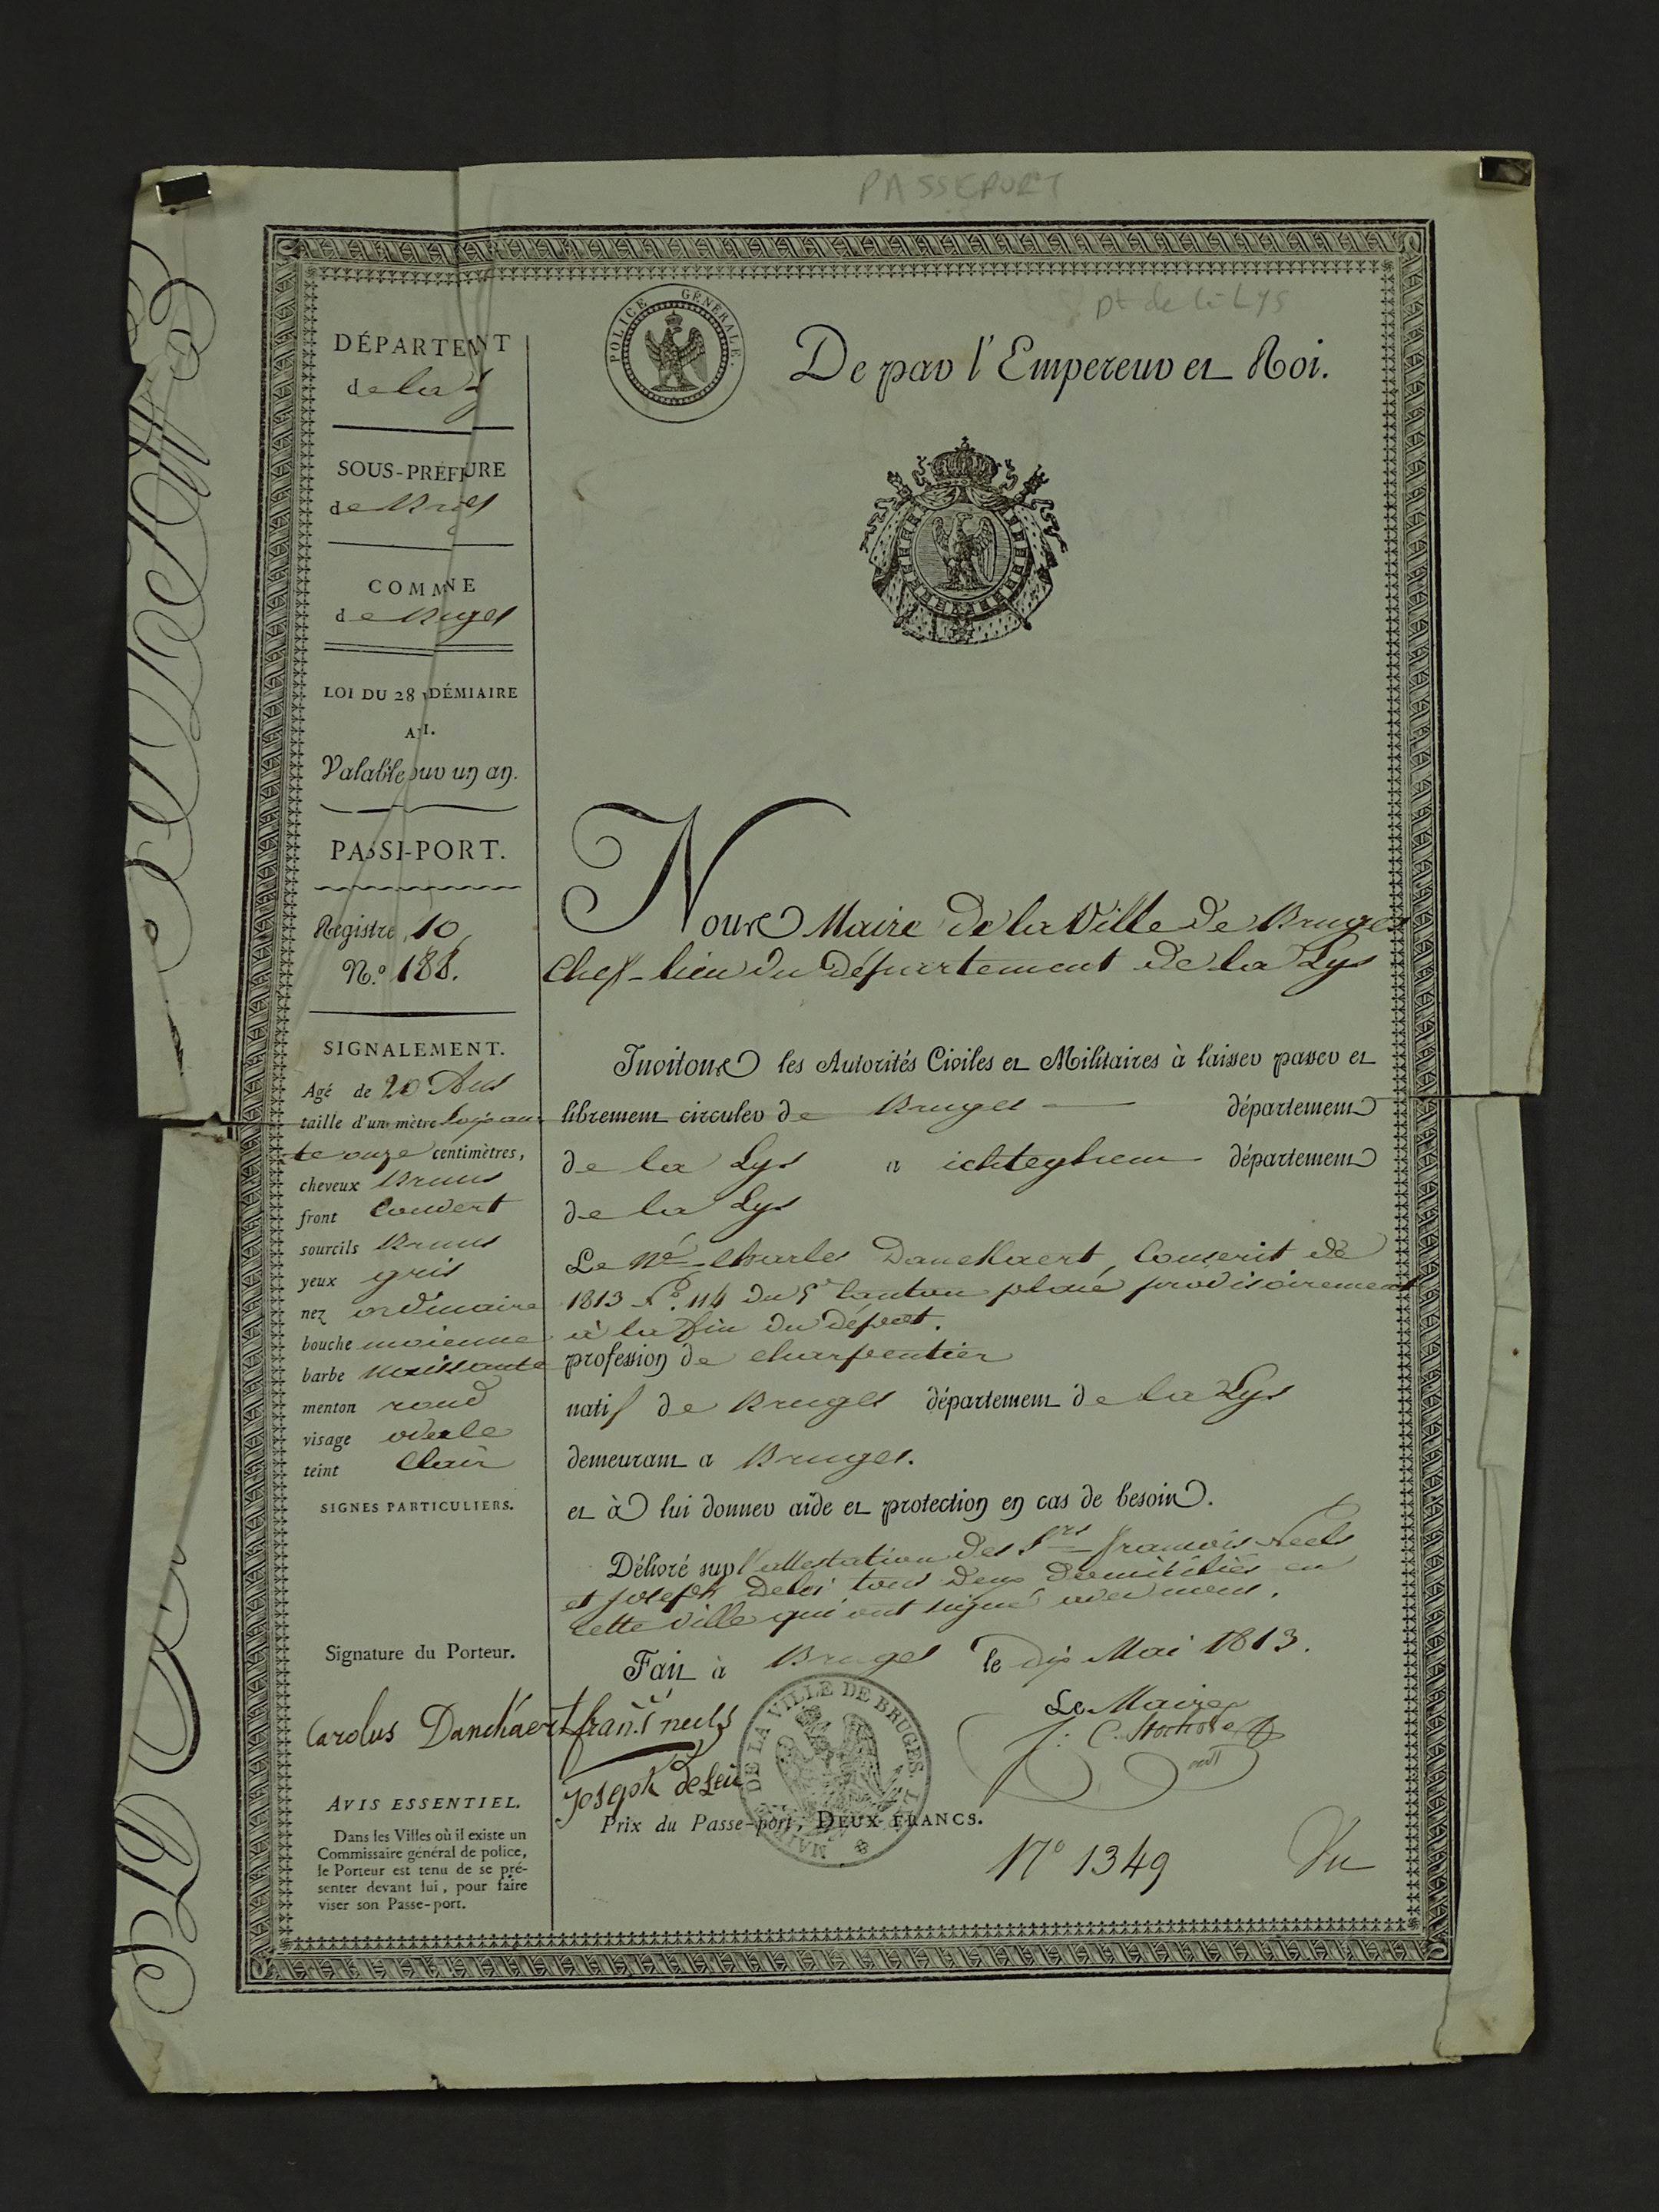 PASSEPORT
Dt de la LYS
POLICE GÉNÉRALE.
De par l'Empereur et Roi.
DÉPARTENT
de la
SOUS-PRÉFURE
de
COMMNE
de Bruges
LOI DU 28 DÉMIAIRE
Valable our un an.
PASSE-PORT.
Registre 10
N.º 188.
SIGNALEMENT.
Agé de 20 Ans
taille d'un mètre soixan
te onze centimètres,
cheveux Bruns
front Couvert
sourcils Bruns
yeux gris
nez ordinaire
bouche moienne
barbe naissante
menton rond
visage ovale
teint Clair
SIGNES PARTICULIERS.
Signature du Porteur.
Carolus Danckaert
AVIS ESSENTIEL.
Dans les Villes où il existe un
Commissaire général de police,
le Porteur est tenu de se pré-
senter devant lui, pour faire
viser son Passe-port.
Nous Maire de la Ville de Bruges
Chef-lieu du Département de la Lys
Invitons les Autorités Civiles et Militaires à laisser passer et
librement circuler de Bruges département
de la Lys a ichteghem département
de la Lys
Le Né Charles Danckaert, Conscrit de
1813 Nº. 114 du 5e Canton placé provisoirement
à la fin du dépot.
profession de charpentier
natif de Bruges département de la Lys
demeurant a Bruges.
et à lui donner aide et protection en cas de besoin.
Délivré sur l'attestation des Srs francois Neels
et Joseph Deloi tous deux domiciliés en
cette ville qui ont signé avec nous.
Fait à Bruges le dix Mai 1813.
Le Maire
frans neels
Joseph
MAIRIE DE LA VILLE DE BRUGES
Prix du Passe-port, DEUX FRANCS.
Nº 1349
Vu